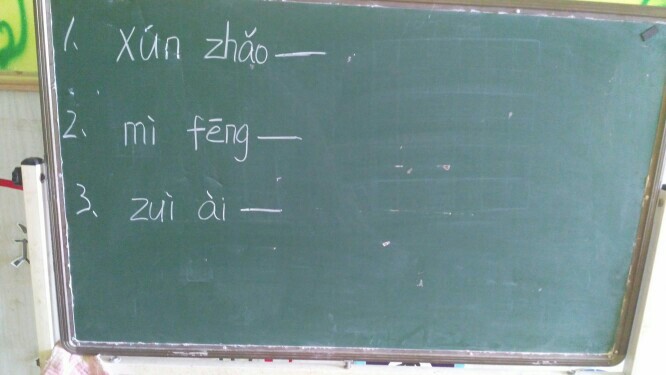 1、 xún zhǎo —
2、 mì fēng —
3、 zuì ài —